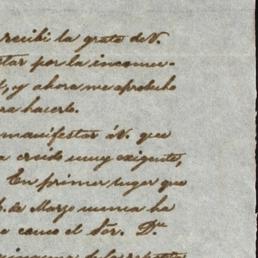 recibi la grata de V.
star por la incomu-
, y ahora me aprobecho
ra hacerlo.
manifestar á V. que
a crsido muy exigente,
En primer lugar que
de Marzo nunca ha
e como el Sor. Dn